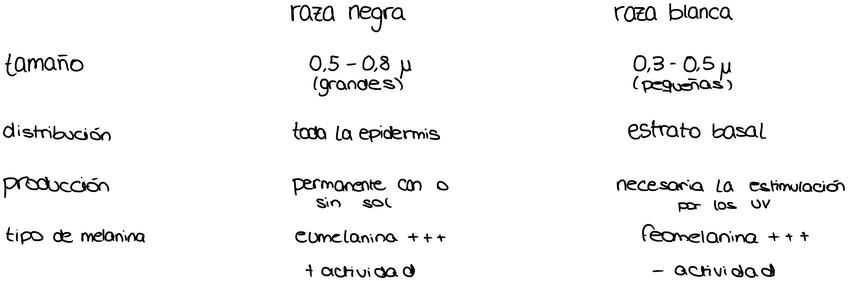 raza negra raza blanca
tamaño 0,5 - 0,8 μ 0,3 - 0,5 μ
(grandes) (pequeñas)
distribución toda la epidermis estrato basal
producción permanente con o necesaria la estimulación
sin sol por los UV
tipo de melanina eumelanina +++ feomelanina +++
+ actividad - actividad